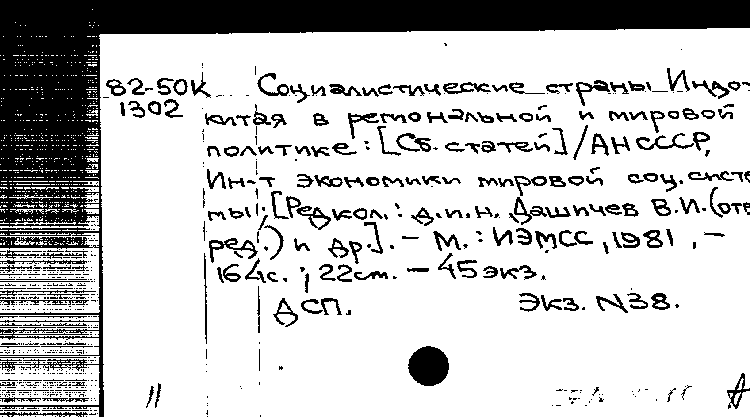 82-50К Социалистические страны Индо-
1302 китая в региональной и мировой
политике: [Сб. статей] / АН СССР,
Ин-т экономики мировой соц. систе-
мы; [Редкол.: д.и.н. Дашичев В.И. (отв.
ред.) и др.]. – М.: ИЭМСС, 1981. –
164с.; 22см. – 45 экз.
ДСП. Экз. N38.
11